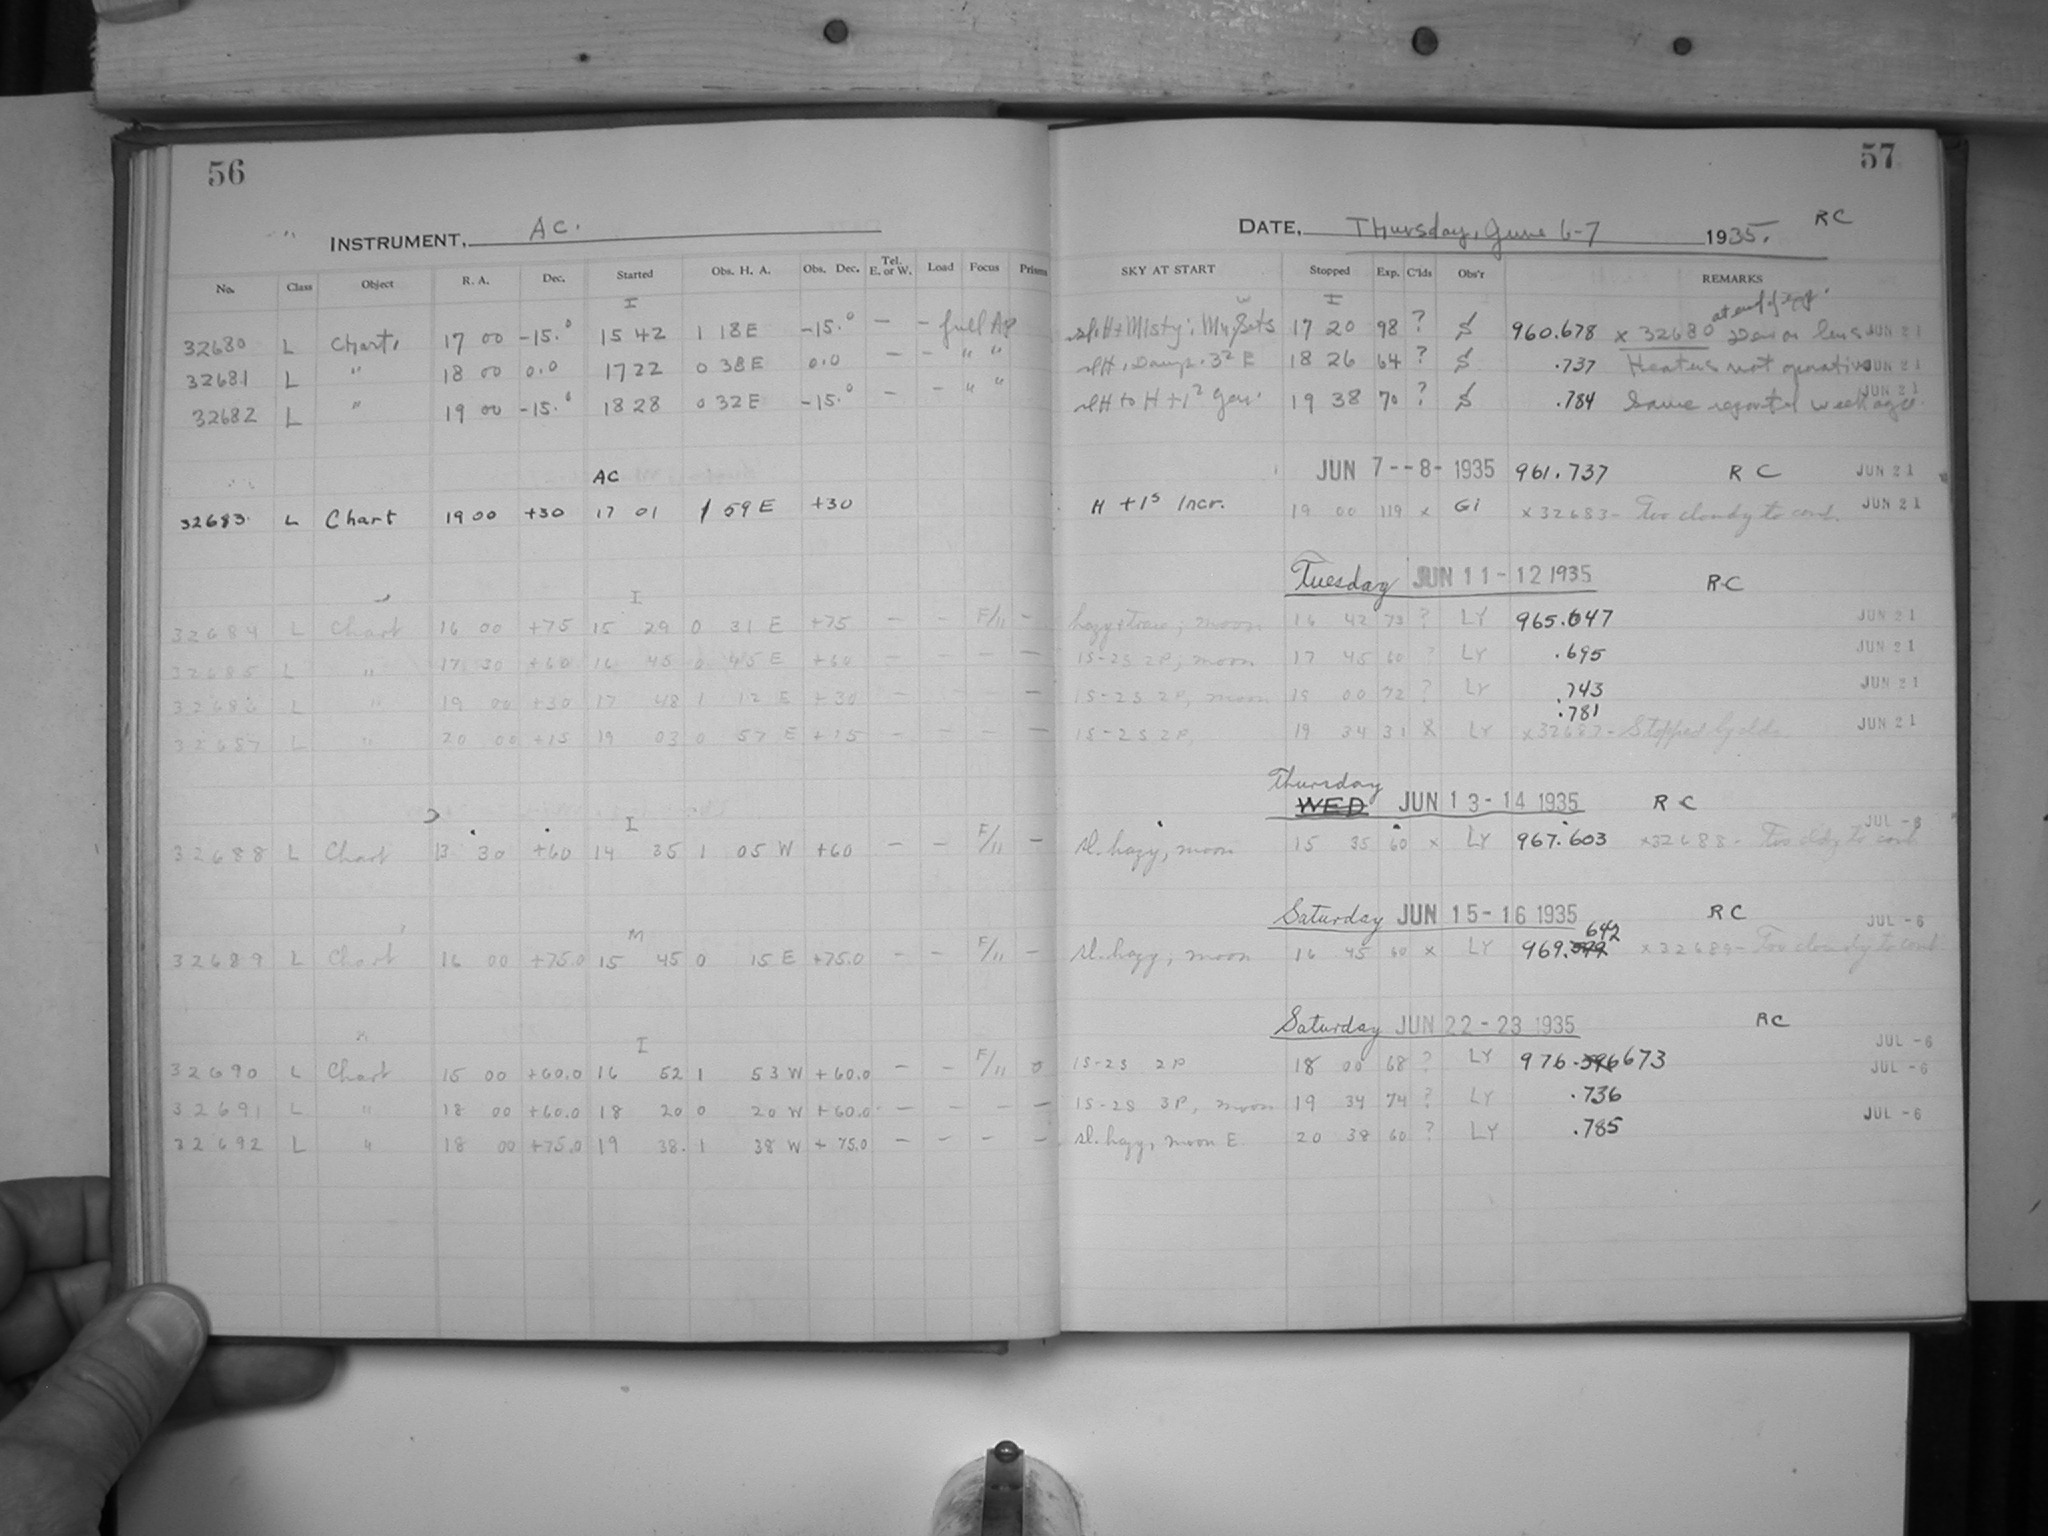 56
INSTRUMENT, AC.
No. Class Object R. A. Dec. Started Obs. H. A. Obs. Dec. Tel. E. or W. Load Focus Prism
I
32680 L Chart 17 00 -15.° 15 42 1 18 E -15.° - - full Ap
32681 L " 18 00 0.0 17 22 0 38 E 0.0 - - " "
32682 L " 19 00 -15.° 18 28 0 32 E -15.° - - " "
AC
32683 L Chart 19 00 +30 17 01 1 59 E +30
I
32684 L Chart 16 00 +75 15 29 0 31 E +75 - - F/11 -
32685 L " 17 30 +60 16 45 0 45 E +60 - - - -
32686 L " 19 00 +30 17 48 1 12 E +30 - - - -
32687 L " 20 00 +15 19 03 0 57 E +15 - - - -
I
32688 L Chart 13 30 +60 14 35 1 05 W +60 - - F/11 -
M
32689 L Chart 16 00 +75.0 15 45 0 15 E +75.0 - - F/11 -
I
32690 L Chart 15 00 +60.0 16 52 1 53 W +60.0 - - F/11 0
32691 L " 18 00 +60.0 18 20 0 20 W +60.0 - - - -
32692 L " 18 00 +75.0 19 38 1 38 W +75.0 - - - -
57
DATE, Thursday, June 6-7 1935. RC
SKY AT START Stopped Exp. C'lds Obs'r REMARKS
I at end of exp.
sl. H + Misty; Mn. Sets 17 20 98 ? S 960.678 x 32680 Dew on lens JUN 21
sl H, Damp. 3² E 18 26 64 ? S .737 Heaters not operative JUN 21
sl H to H + 1² Gen. 19 38 70 ? S .784 Same reported week ago. JUN 21
JUN 7--8- 1935 961.737 RC JUN 21
H + 1s Incr. 19 00 119 x Gi x32683- Too cloudy to cont. JUN 21
Tuesday JUN 11-12 1935 RC
hazy + trace; moon 16 42 73 ? LY 965.647 JUN 21
1S-2S 2P, moon 17 45 60 ? LY .695 JUN 21
1S-2S 2P, moon 19 00 72 ? LY .743 JUN 21
.781
1S-2S 2P, 19 34 31 x LY x32687- Stopped by clds. JUN 21
Thursday
WED JUN 13-14 1935 RC
sl. hazy, moon 15 35 60 x LY 967.603 x32688- Too cldy to cont JUL -6
Saturday JUN 15-16 1935 RC JUL -6
642
sl. hazy, moon 16 45 60 x LY 969. x32689- Too cloudy to cont
Saturday JUN 22-23 1935 RC
JUL -6
1S-2S 2P 18 00 68 ? LY 976.673 JUL -6
1S-2S 3P, moon 19 34 74 ? LY .736
sl. hazy, moon E. 20 38 60 ? LY .785 JUL -6